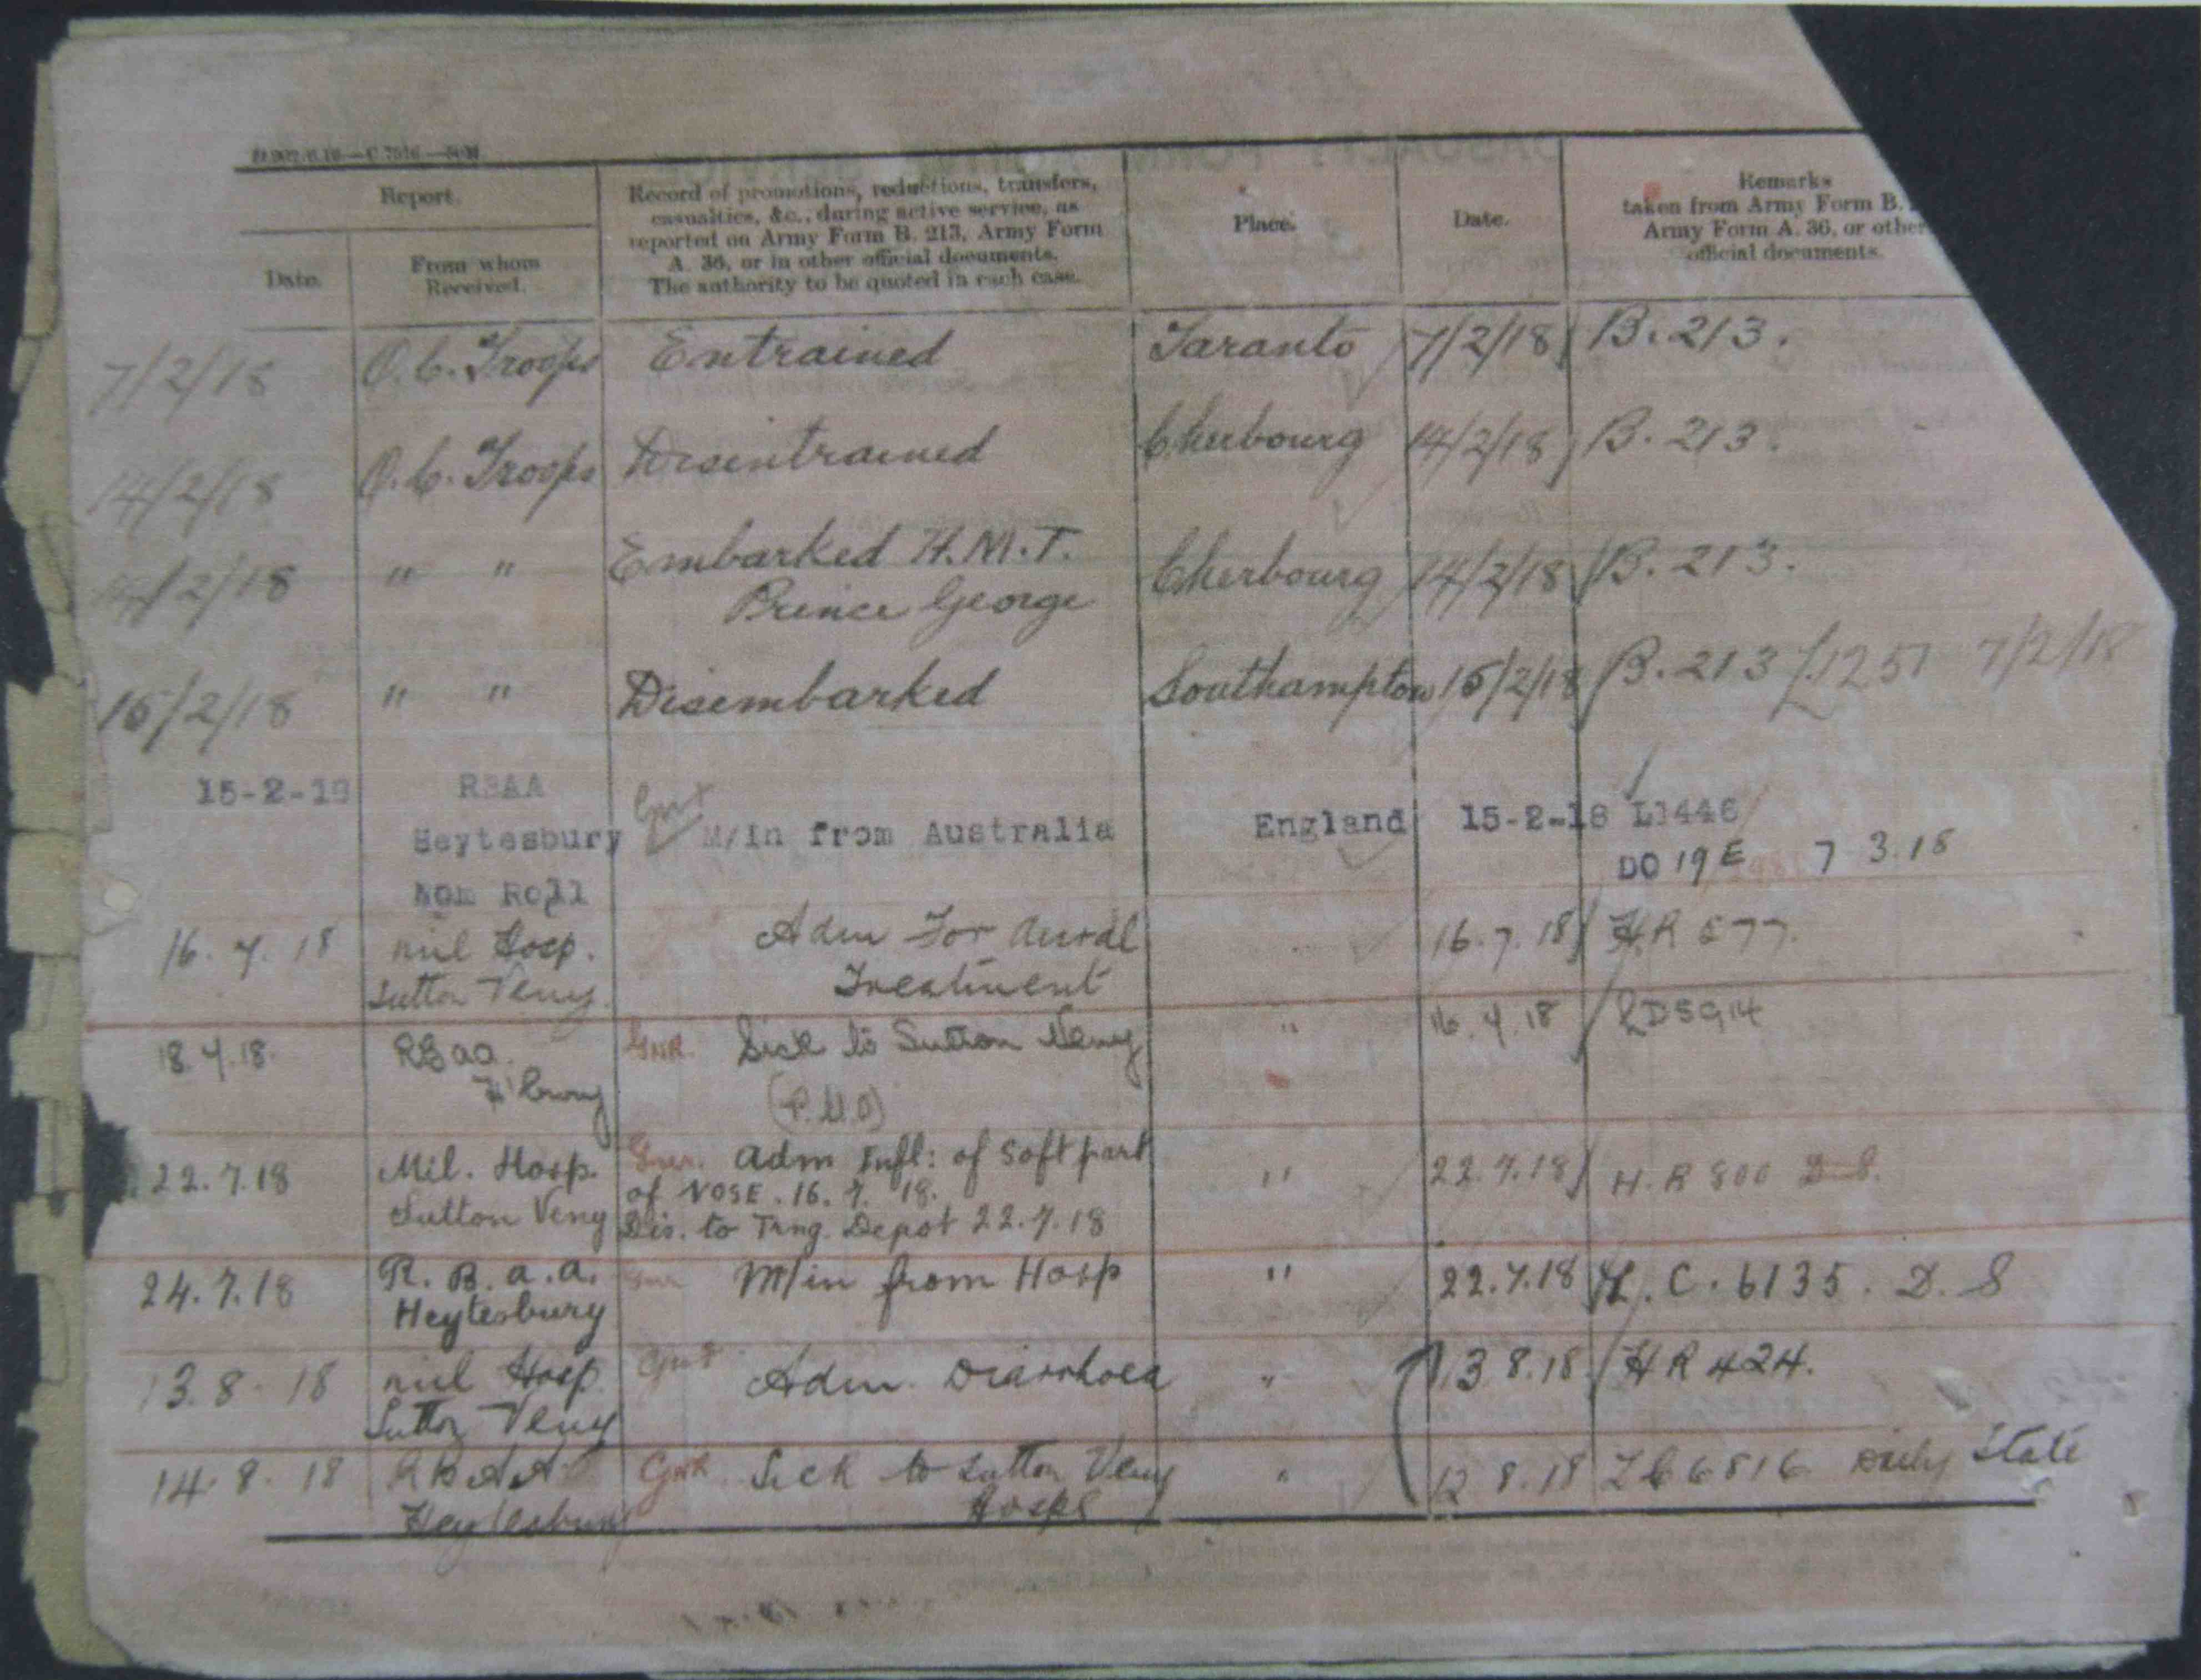 Report.
Date.
From whom
Received.
Record of promotions, reductions, transfers,
casualties, &c., during active service, as
reported on Army Form B. 213, Army Form
A. 36, or in other official documents.
The authority to be quoted in each case.
Place.
Date.
Remarks
taken from Army Form B.
Army Form A. 36, or other
official documents.
7/2/18 O.C. Troops Entrained Taranto 7/2/18 B. 213.
14/2/18 O.C. Troops Disentrained Cherbourg 14/2/18 B. 213.
14/2/18 " " Embarked H.M.T. Cherbourg 14/2/18 B. 213.
Prince George
15/2/18 " " Disembarked Southampton 15/2/18 B. 213 L1251 7/2/18
15-2-18 RBAA
Heytesbury Gnr M/In from Australia England 15-2-18 L1446
Nom Roll DO 19 E 7 3.18
16. 7. 18 Mil Hosp. Adm For Aural 16.7.18 H.R 577.
Sutton Veny Treatment
18.7.18. RBaa GNR. Sick to Sutton Veny " 16.7.18 LD5914
H'bury (P.U.O)
22.7.18 Mil. Hosp. Gnr. adm Infl: of soft part " 22.7.18 H.R 800 D S.
Sutton Veny of NOSE. 16. 7. 18.
Dis. to Trng. Depot 22.7.18
24.7.18 R. B. a. a. Gnr M/in from Hosp " 22.7.18 L. C. 6135. D. S
Heytesbury
13.8.18 Mil Hosp. Gnr Adm. Diarrhoea " 13 8.18 H R 424.
Sutton Veny
14.8.18 RBAA GNR Sick to Sutton Veny " 12 8.18 LC6816 Daily State
Heytesbury Hospl